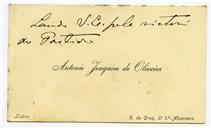 Saudo V. Ex. pela victoria
do Partido
Antonio Joaquim de Oliveira
Lisboa
R. da Cruz, 31 3.º-Alcantara